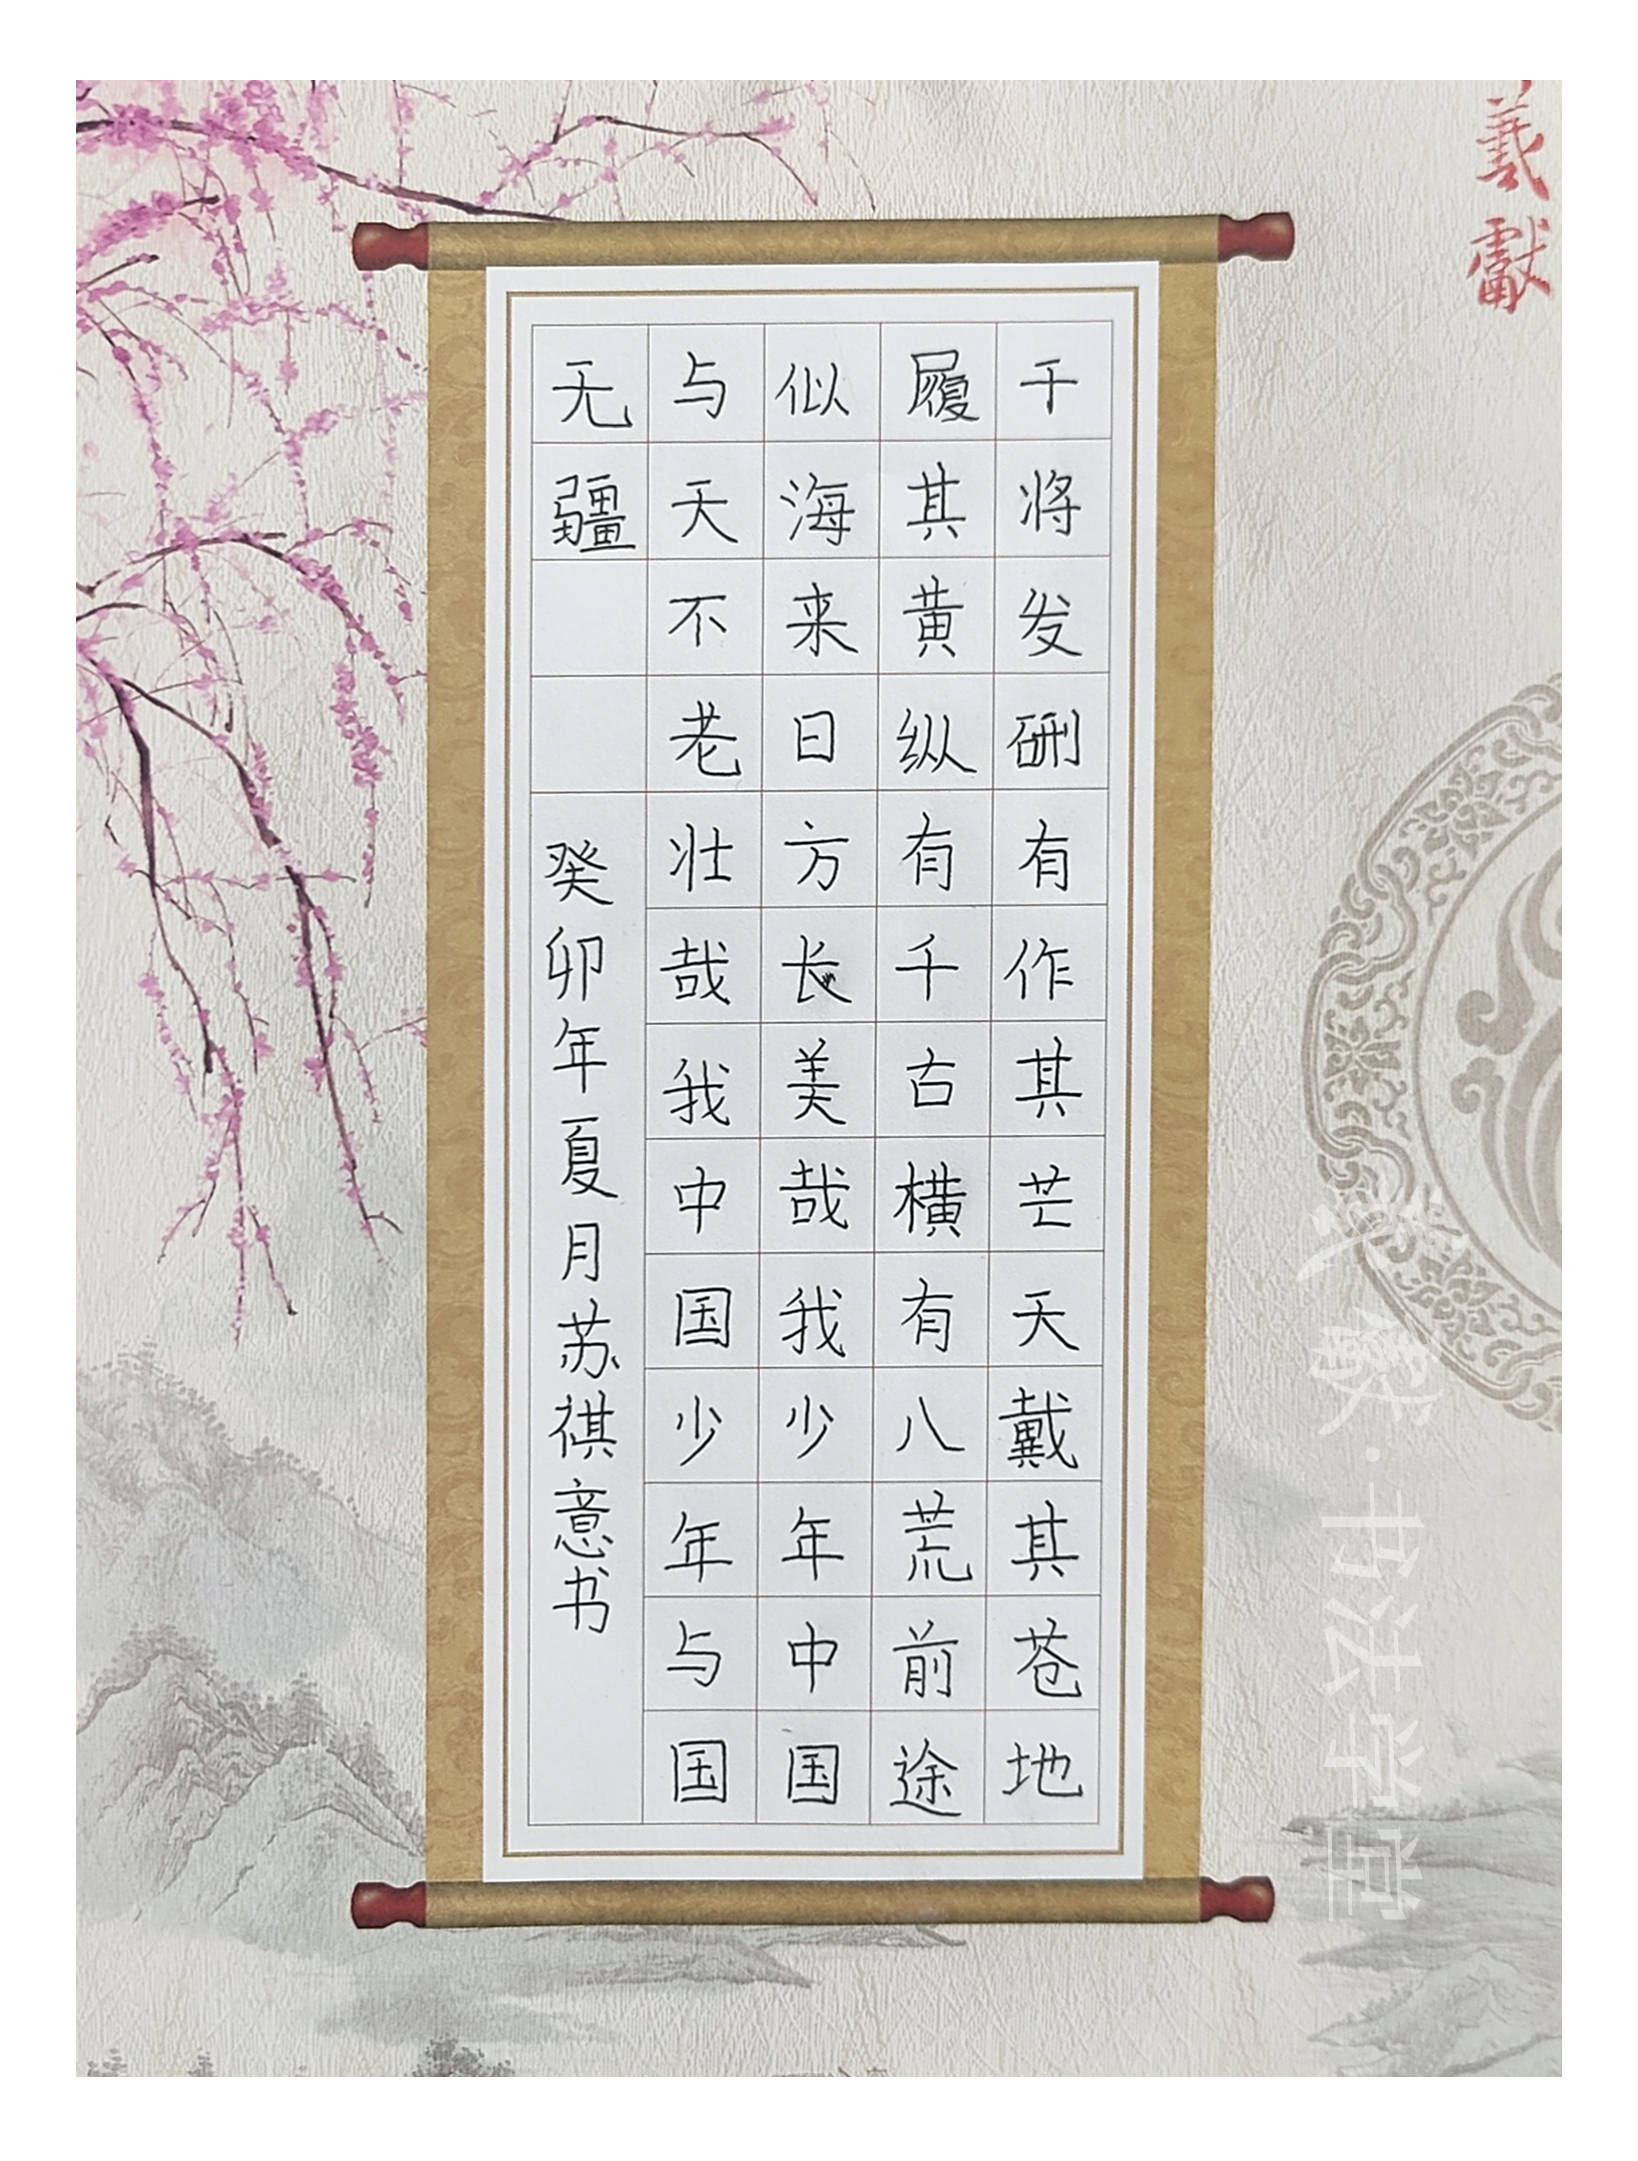 干将发硎有作其芒天戴其苍地
履其黄纵有千古横有八荒前途
似海来日方长美哉我少年中国
与天不老壮哉我中国少年与国
无疆
癸卯年夏月苏祺意书
羲獻
羲献·书法学堂